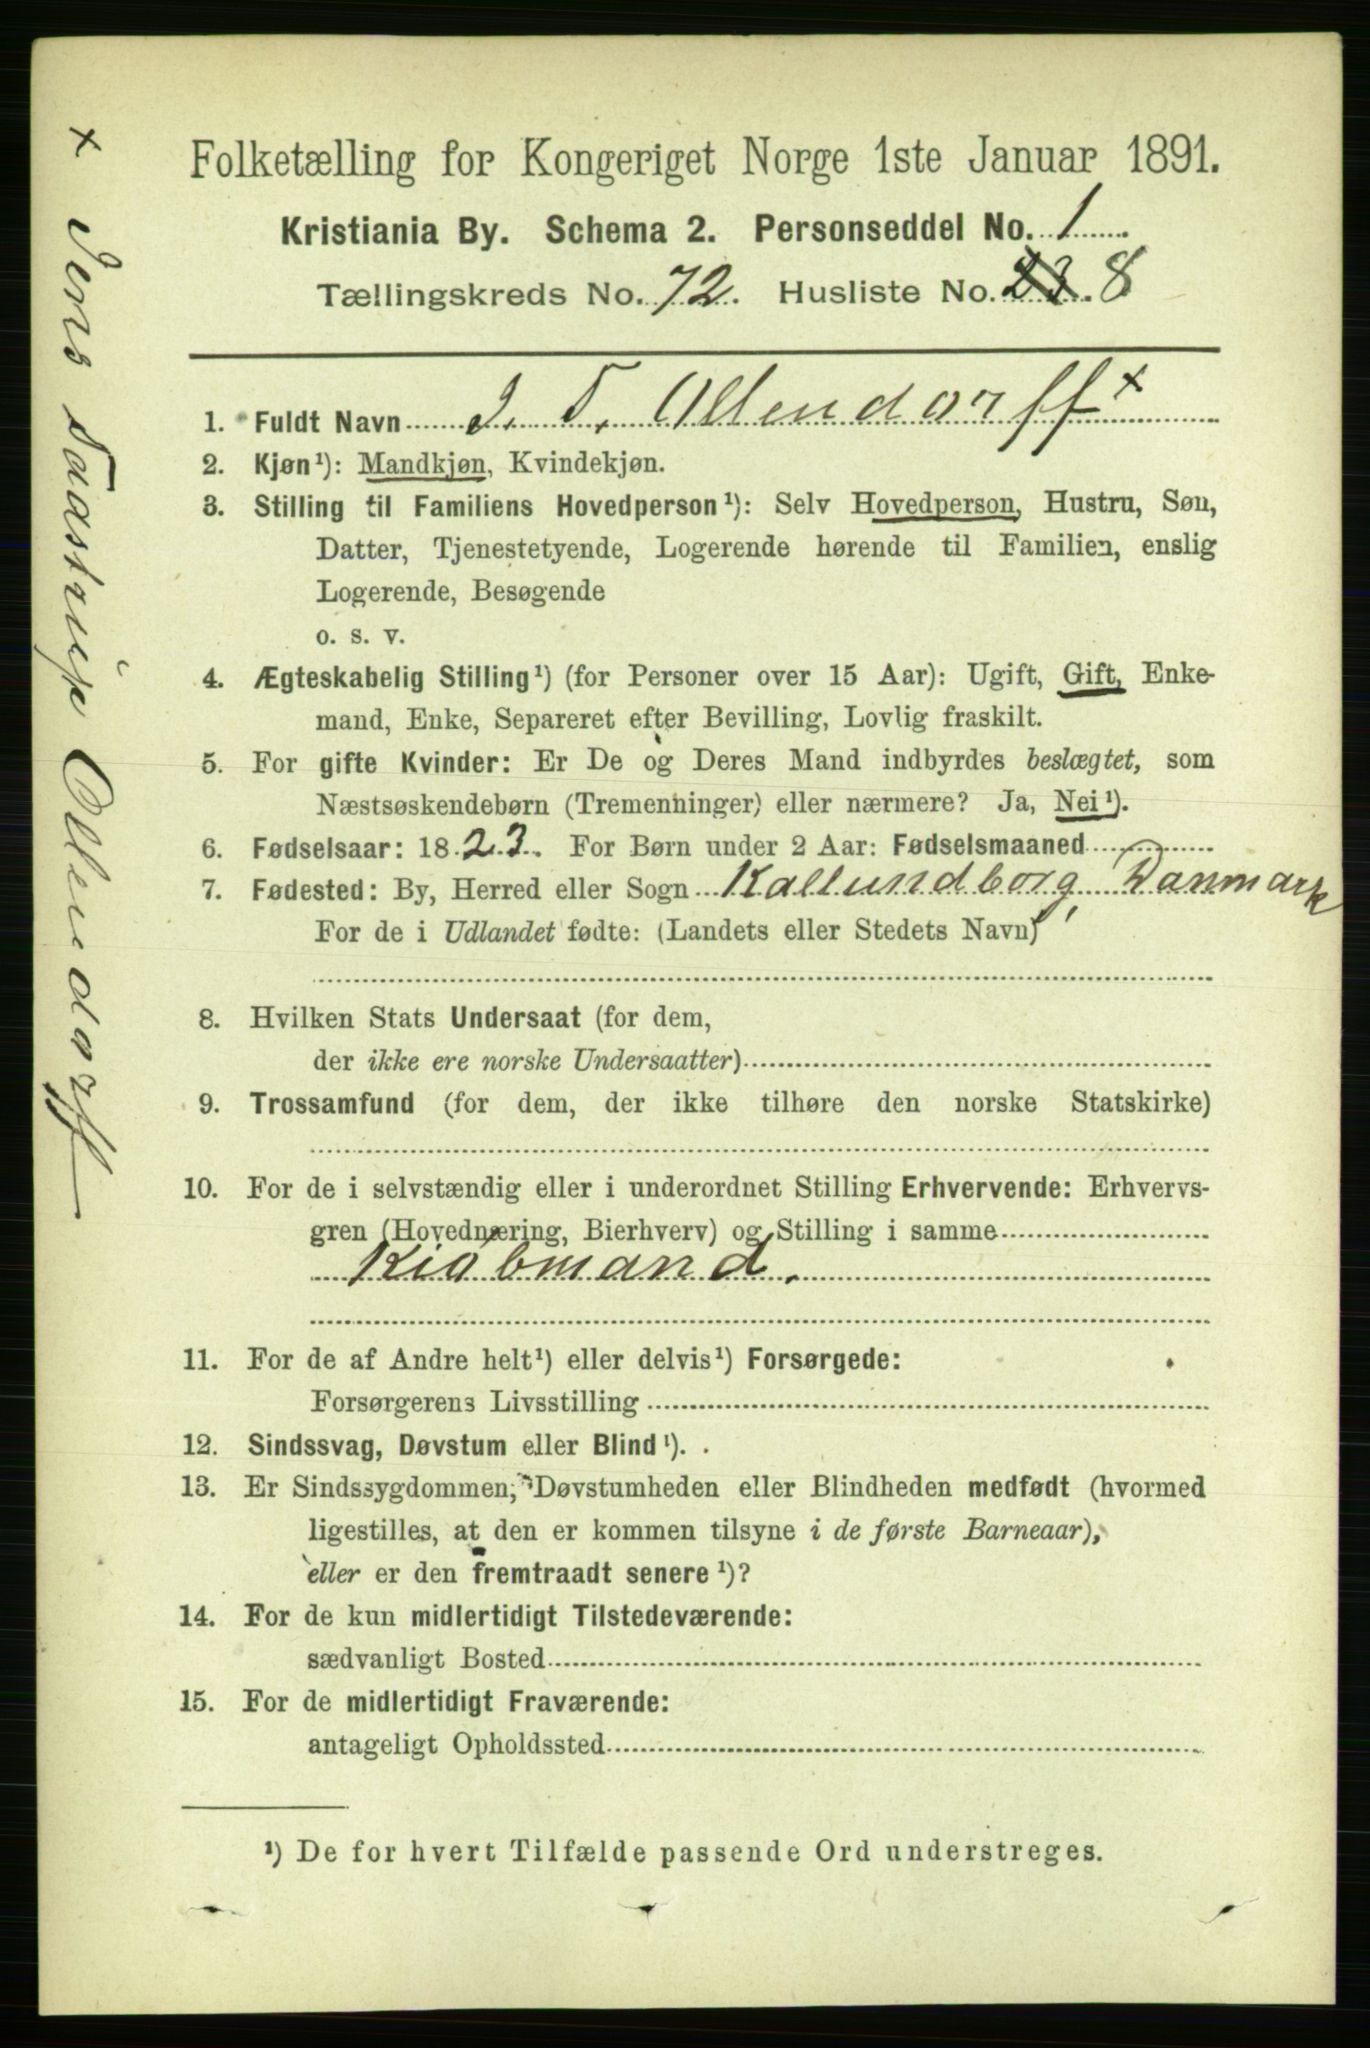 Folketælling for Kongeriget Norge 1ste Januar 1891.
Kristiania By. Schema 2. Personseddel No. 1
Tællingskreds No. 72. Husliste No. 23. 8
1. Fuldt Navn J. T. Ollendorff x
2. Kjøn¹): Mandkjøn, Kvindekjøn.
3. Stilling til Familiens Hovedperson¹): Selv Hovedperson, Hustru, Søn,
Datter, Tjenestetyende, Logerende hørende til Familien, enslig
Logerende, Besøgende
o. s. v.
4. Ægteskabelig Stilling¹) (for Personer over 15 Aar): Ugift, Gift, Enke-
mand, Enke, Separeret efter Bevilling, Lovlig fraskilt.
5. For gifte Kvinder: Er De og Deres Mand indbyrdes beslægtet, som
Næstsøskendebørn (Tremenninger) eller nærmere? Ja, Nei¹).
6. Fødselsaar: 1823. For Børn under 2 Aar: Fødselsmaaned
7. Fødested: By, Herred eller Sogn Kallundborg, Danmark
For de i Udlandet fødte: (Landets eller Stedets Navn)
8. Hvilken Stats Undersaat (for dem,
der ikke ere norske Undersaatter)
9. Trossamfund (for dem, der ikke tilhøre den norske Statskirke)
10. For de i selvstændig eller i underordnet Stilling Erhvervende: Erhvervs-
gren (Hovednæring, Bierhverv) og Stilling i samme
Kiøbmand.
11. For de af Andre helt¹) eller delvis¹) Forsørgede:
Forsørgerens Livsstilling
12. Sindssvag, Døvstum eller Blind¹).
13. Er Sindssygdommen, Døvstumheden eller Blindheden medfødt (hvormed
ligestilles, at den er kommen tilsyne i de første Barneaar),
eller er den fremtraadt senere¹)?
14. For de kun midlertidigt Tilstedeværende:
sædvanligt Bosted
15. For de midlertidigt Fraværende:
antageligt Opholdssted
¹) De for hvert Tilfælde passende Ord understreges.
x Jens Ollendorff